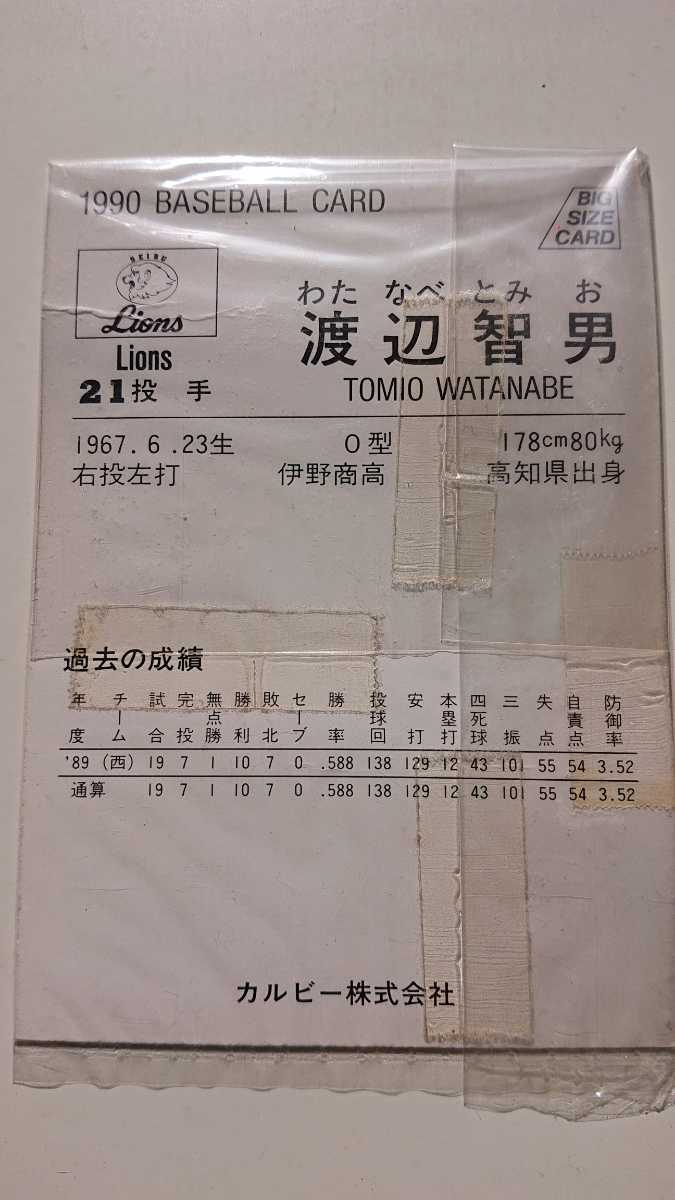 1990 BASEBALL CARD
BIG
SIZE
CARD
SEIBU
Lions
Lions
21投手
わた なべ とみ お
渡辺智男
TOMIO WATANABE
1967.6.23生 O型 178cm80kg
右投左打 伊野商高 高知県出身
過去の成績
年度 チーム 試合 完投 無点勝 勝利 敗北 セーブ 勝率 投球回 安打 本塁打 四死球 三振 失点 自責点 防御率
'89 (西) 19 7 1 10 7 0 .588 138 129 12 43 101 55 54 3.52
通算 19 7 1 10 7 0 .588 138 129 12 43 101 55 54 3.52
カルビー株式会社